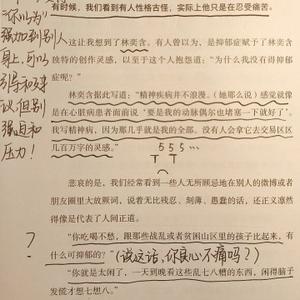 有时候，我们看到有人性格古怪，实际上他只是在忍受痛苦。
这让我想到了林奕含。有人曾以为，是抑郁症赋予了林奕含
独特的创作灵感，以至于这个人抱怨道：“为什么我没有得抑郁
症呢？”
林奕含据此写道：“精神疾病并不浪漫。（她那么说）感觉就像
是在心脏病患者面前说‘要是我的动脉偶尔也堵塞一下就好了’。
我写精神病，因为那几乎就是我的全部。没有人会拿它去交易区区
几百万字的灵感。”
555…
TT
悲哀的是，我们经常看到一些人无所顾忌地在别人的微博或者
朋友圈里大放厥词，说着无比残忍、刻薄、愚蠢的话，还正义凛然
得像是代表了人间正道。
“你吃喝不愁，跟那些战乱或者贫困山区里的孩子比起来，有
什么可抑郁的？”（说这话，你良心不痛吗？）
“你就是太闲了，一天到晚看这些乱七八糟的东西，闲得脑子
发慌才想七想八。”
“你以为”
强加到别人
身上，可以
引导和建
议但别
强迫和
压力！
？